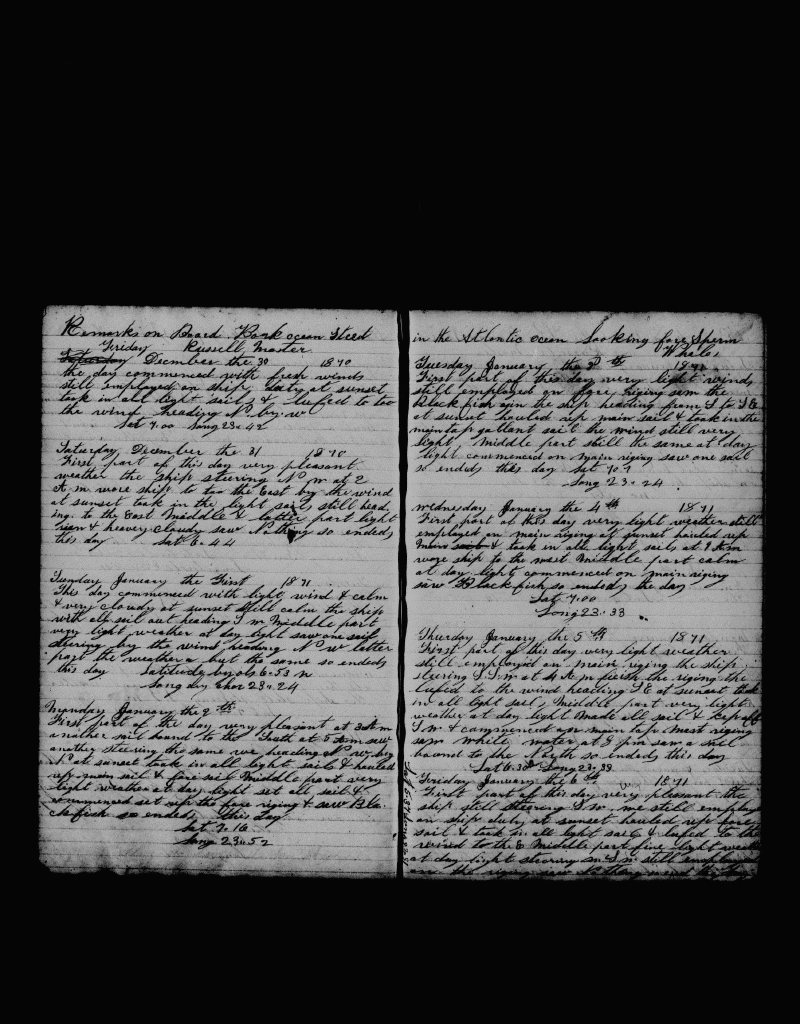 Remarks on Board Bark ocean Steed
Friday Russell Master
Saturday December the 30 1870
the day commenced with fresh winds
still employed on ship duty at sunset
took in all light sails & lufed to too
the wind heading N by w
Lat 7.00 Long 23.42
Saturday December the 31 1870
First part of this day very pleasant
weather the ship steering N w at 2
A m wore ship to too the East by the wind
at sunset took in the light sails still head
ing to the East Middle & latter part light
rain & heavey cloudy saw Nothing so ended
this day Lat 6.44
Sunday January the First 1871
This day commenced with light wind & calm
& very cloudy at sunset still calm the ship
with all sail out heading S w Middle part
very light weather at day light saw one sail
steering by the wind heading N w latter
part the weather but the same so ended
this day Latitude by obs 6.53 N
Long by Chor 23.24
Monday January the 2th
First part of the day very pleasant at 3 A m
another sail bound to the South at 5 A m saw
another steering the same we heading N w by
N at sunset took in all light sails & hauled
up main sail & fore sail Middle part very
light weather at day light set all sail &
commenced set up the fore riging & saw Bla
ckfish so ended this Day
Lat 7.16
Long 23.52
in the Atlantic ocean Looking fore Sperm
Whales
Tuesday January the 3th 1871
First part of this day very light winds
still employed on fore riging saw the
Black fish again the ship heading from S to S E
at sunset hauled up main sail & took in the
main top gallant sail the wind still very
light Middle part still the same at day
light commenced on main riging saw one sail
so ended this day Lat 10.7
Long 23.24
Wednesday January the 4th 1871
First part of this day very light weather still
employed on main riging at sunset hauled up
Main sail & took in all light sails at 9 A m
wore ship to the west Middle part calm
at day light commenced on main riging
saw Black fish so ended the day
Lat 7.00
Long 23.33
Thursday January the 5th 1871
First part of this day very light weather
still employed on main riging the ship
steering S. S. w at 4 A m finish the riging the
lufed to the wind heading S E at sunset took
in all light sails Middle part very light
weather at day light Made all sail & kep off
S w & commenced on main top mast riging
saw white water at 9 p m saw a sail
bound to the North so ended this day
Lat 6.38 Long 23.33
Friday January the 6th 1871
First part of this day very pleasant the
ship still steering S. w. we still employed
on ship duty at sunset hauled up fore
sail & took in all light sails & lufed to the
wind to the E Middle part fine light weath
at day light steering S. w still employed
on the riging saw Nothing